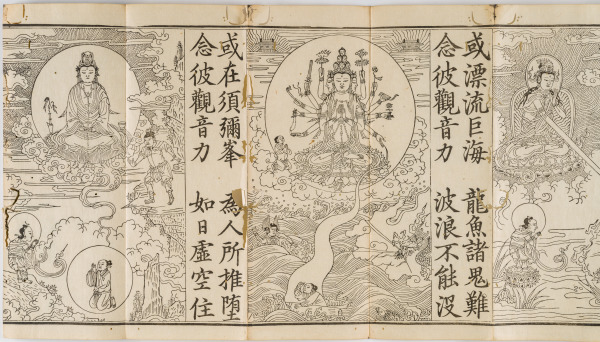 或漂流巨海　龍魚諸鬼難
念彼觀音力　波浪不能沒
或在須彌峯　為人所推墮
念彼觀音力　如日虛空住